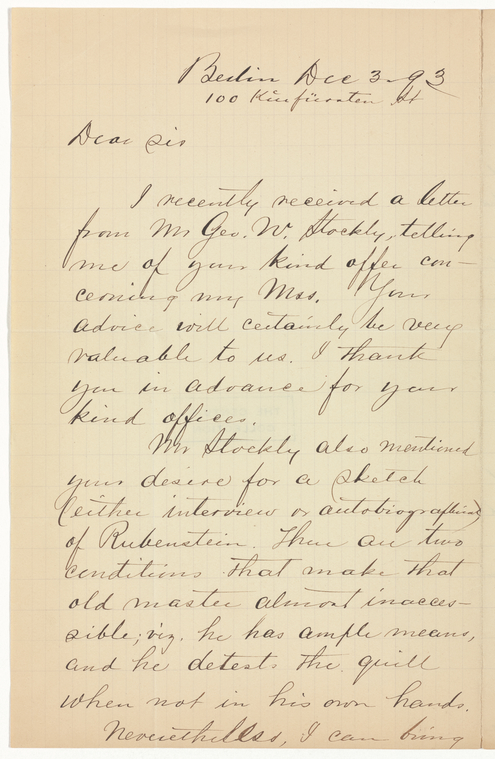 Berlin Dec 3 - 93
100 Kurfürsten St
Dear Sir
I recently received a letter
from Mr Geo. W. Stockly, telling
me of your kind offer con-
cerning my Mss. Your
advice will certainly be very
valuable to us. I thank
you in advance for your
kind offices.
Mr Stockly also mentioned
your desire for a sketch
(either interview or autobiographical)
of Rubenstein. There are two
conditions that make that
old master almost inacces-
sible; viz. he has ample means,
and he detests the quill
when not in his own hands.
Nevertheless, I can bring